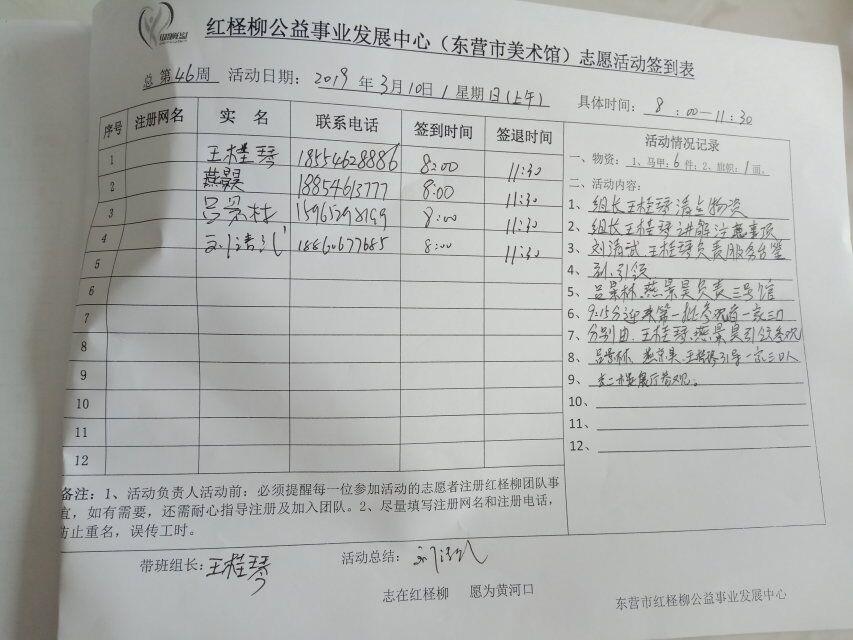 红柽柳公益事业发展中心（东营市美术馆）志愿活动签到表
总 第46周 活动日期： 2019 年 3月10日 1 星期日(上午) 具体时间： 8 ：00—11：30
序号 注册网名 实 名 联系电话 签到时间 签退时间
1 王桂琴 18554628886 8:00 11:30
2 燕景昊 18854613777 8:00 11:30
3 吕景林 15965298199 8:00 11:30
4 刘清武 18860677685 8:00 11:30
5
6
7
8
9
10
11
12
活动情况记录
一、物资： 1、马甲：6 件；2、旗帜：1 面。
二、活动内容：
1、组长王桂琴清点物资
2、组长王桂琴讲解注意事项
3、刘清武.王桂琴负责服务台签
4、到.引领
5、吕景林.燕景昊负责三号馆
6、9:15分迎来第一批参观者一家三口
7、分别由.王桂琴.燕景昊引领参观
8、吕景林. 燕景昊.王桂琴引导一家三口人
9、去二楼展厅参观。
10、
11、
12、
备注：1、活动负责人活动前：必须提醒每一位参加活动的志愿者注册红柽柳团队事
宜，如有需要，还需耐心指导注册及加入团队。2、尽量填写注册网名和注册电话，
防止重名，误传工时。
带班组长：王桂琴 活动总结：刘清武
志在红柽柳 愿为黄河口
东营市红柽柳公益事业发展中心